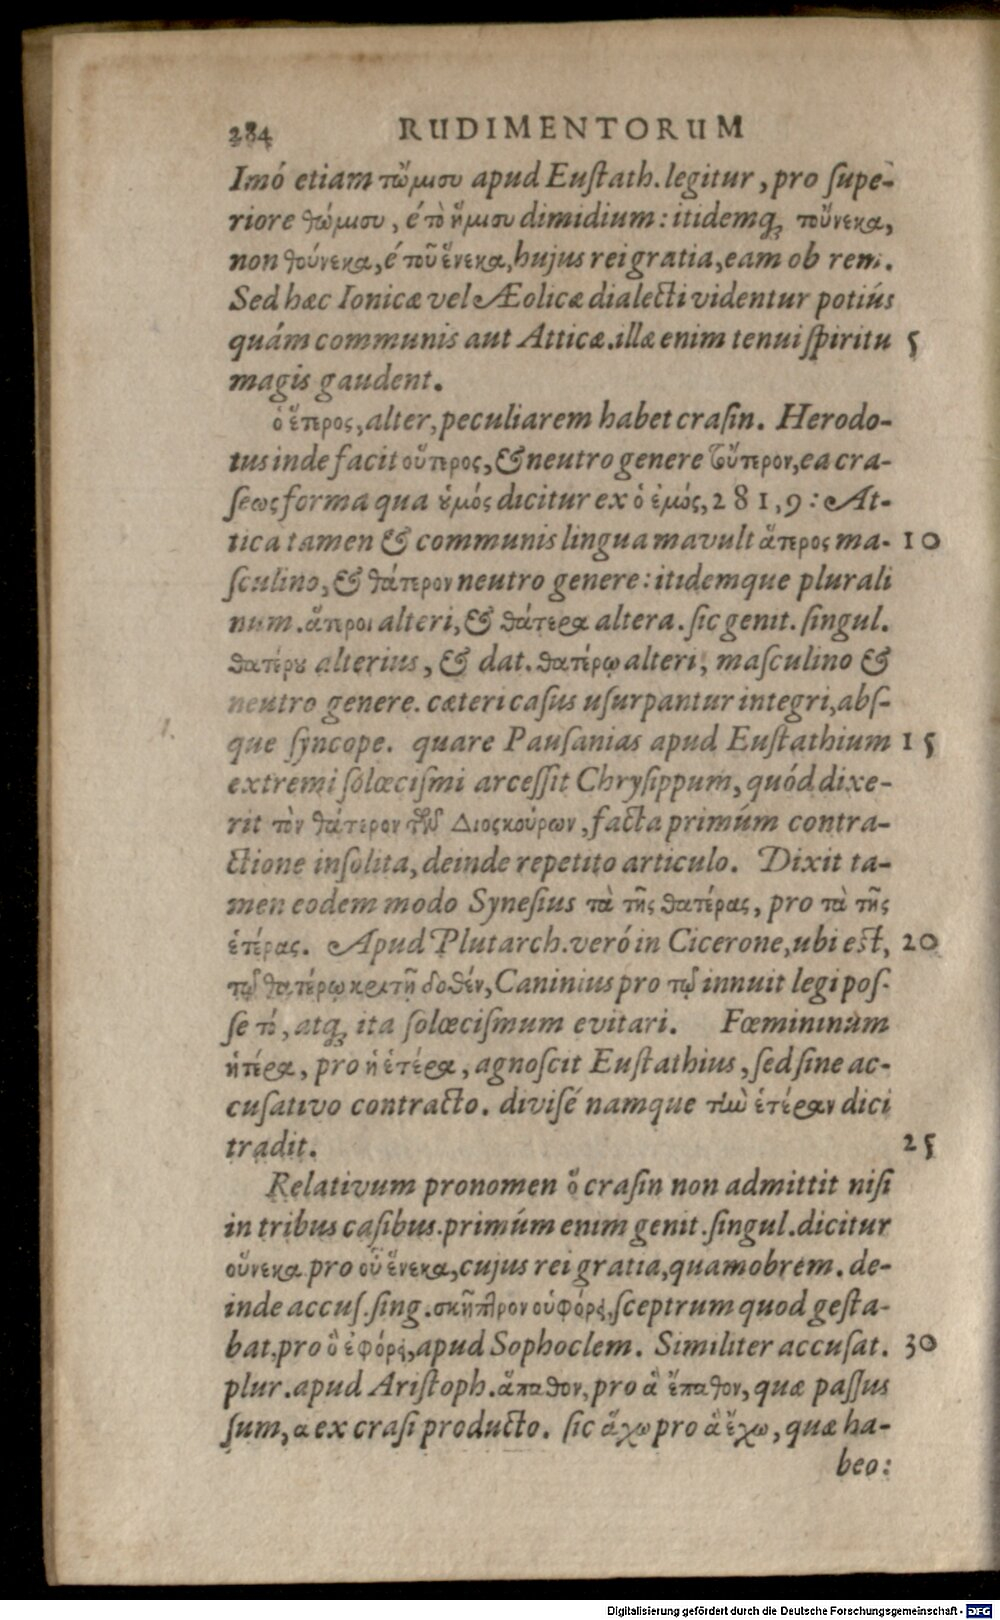 284 RUDIMENTORUM
Imó etiam τὤμισυ apud Eustath. legitur, pro supe-
riore θώμισυ, é τὸ ἥμισυ dimidium: itidemq; τοὔνεκα,
non θούνεκα, é τοῦ ἕνεκα, hujus rei gratia, eam ob rem.
Sed hæc Ionicæ vel Æolicæ dialecti videntur potiús
quám communis aut Atticæ. illæ enim tenui spiritu 5
magis gaudent.
ὁ ἕτερος, alter, peculiarem habet crasin. Herodo-
tus inde facit οὕτερος, & neutro genere τοὔτερον, ea cra-
seως forma qua οὑμός dicitur ex ὁ ἐμός, 281, 9: At-
tica tamen & communis lingua mavult ἅτερος ma- 10
sculino, & θάτερον neutro genere: itidemque plurali
num. ἅτεροι alteri, & θάτερα altera. sic genit. singul.
θατέρου alterius, & dat. θατέρῳ alteri, masculino &
neutro genere. cæteri casus usurpantur integri, abs-
que syncope. quare Pausanias apud Eustathium 15
extremi solœcismi arcessit Chrysippum, quód dixe-
rit τὸν θάτερον τῶν Διοςκούρων, facta primúm contra-
ctione insolita, deinde repetito articulo. Dixit ta-
men eodem modo Synesius τὰ τῆς θατέρας, pro τὰ τῆς
ἑτέρας. Apud Plutarch. veró in Cicerone, ubi est, 20
τῷ θατέρῳ κριτῇ δοθέν, Caninius pro τῷ innuit legi pos-
se τὸ, atq; ita solœcismum evitari. Fœmininum
ἡτέρα, pro ἡ ἑτέρα, agnoscit Eustathius, sed sine ac-
cusativo contracto. divisé namque τὴν ἑτέραν dici
tradit. 25
Relativum pronomen ὅ crasin non admittit nisi
in tribus casibus. primúm enim genit. singul. dicitur
οὕνεκα pro οὗ ἕνεκα, cujus rei gratia, quamobrem. de-
inde accus. sing. σκῆπτρον οὑφόρει, sceptrum quod gesta-
bat. pro ὃ ἐφόρει, apud Sophoclem. Similiter accusat. 30
plur. apud Aristoph. ἅπαθον, pro ἃ ἔπαθον, quæ passus
sum, α ex crasi producto. sic ἅχω pro ἃ ἔχω, quæ ha-
beo:
Digitalisierung gefördert durch die Deutsche Forschungsgemeinschaft - DFG